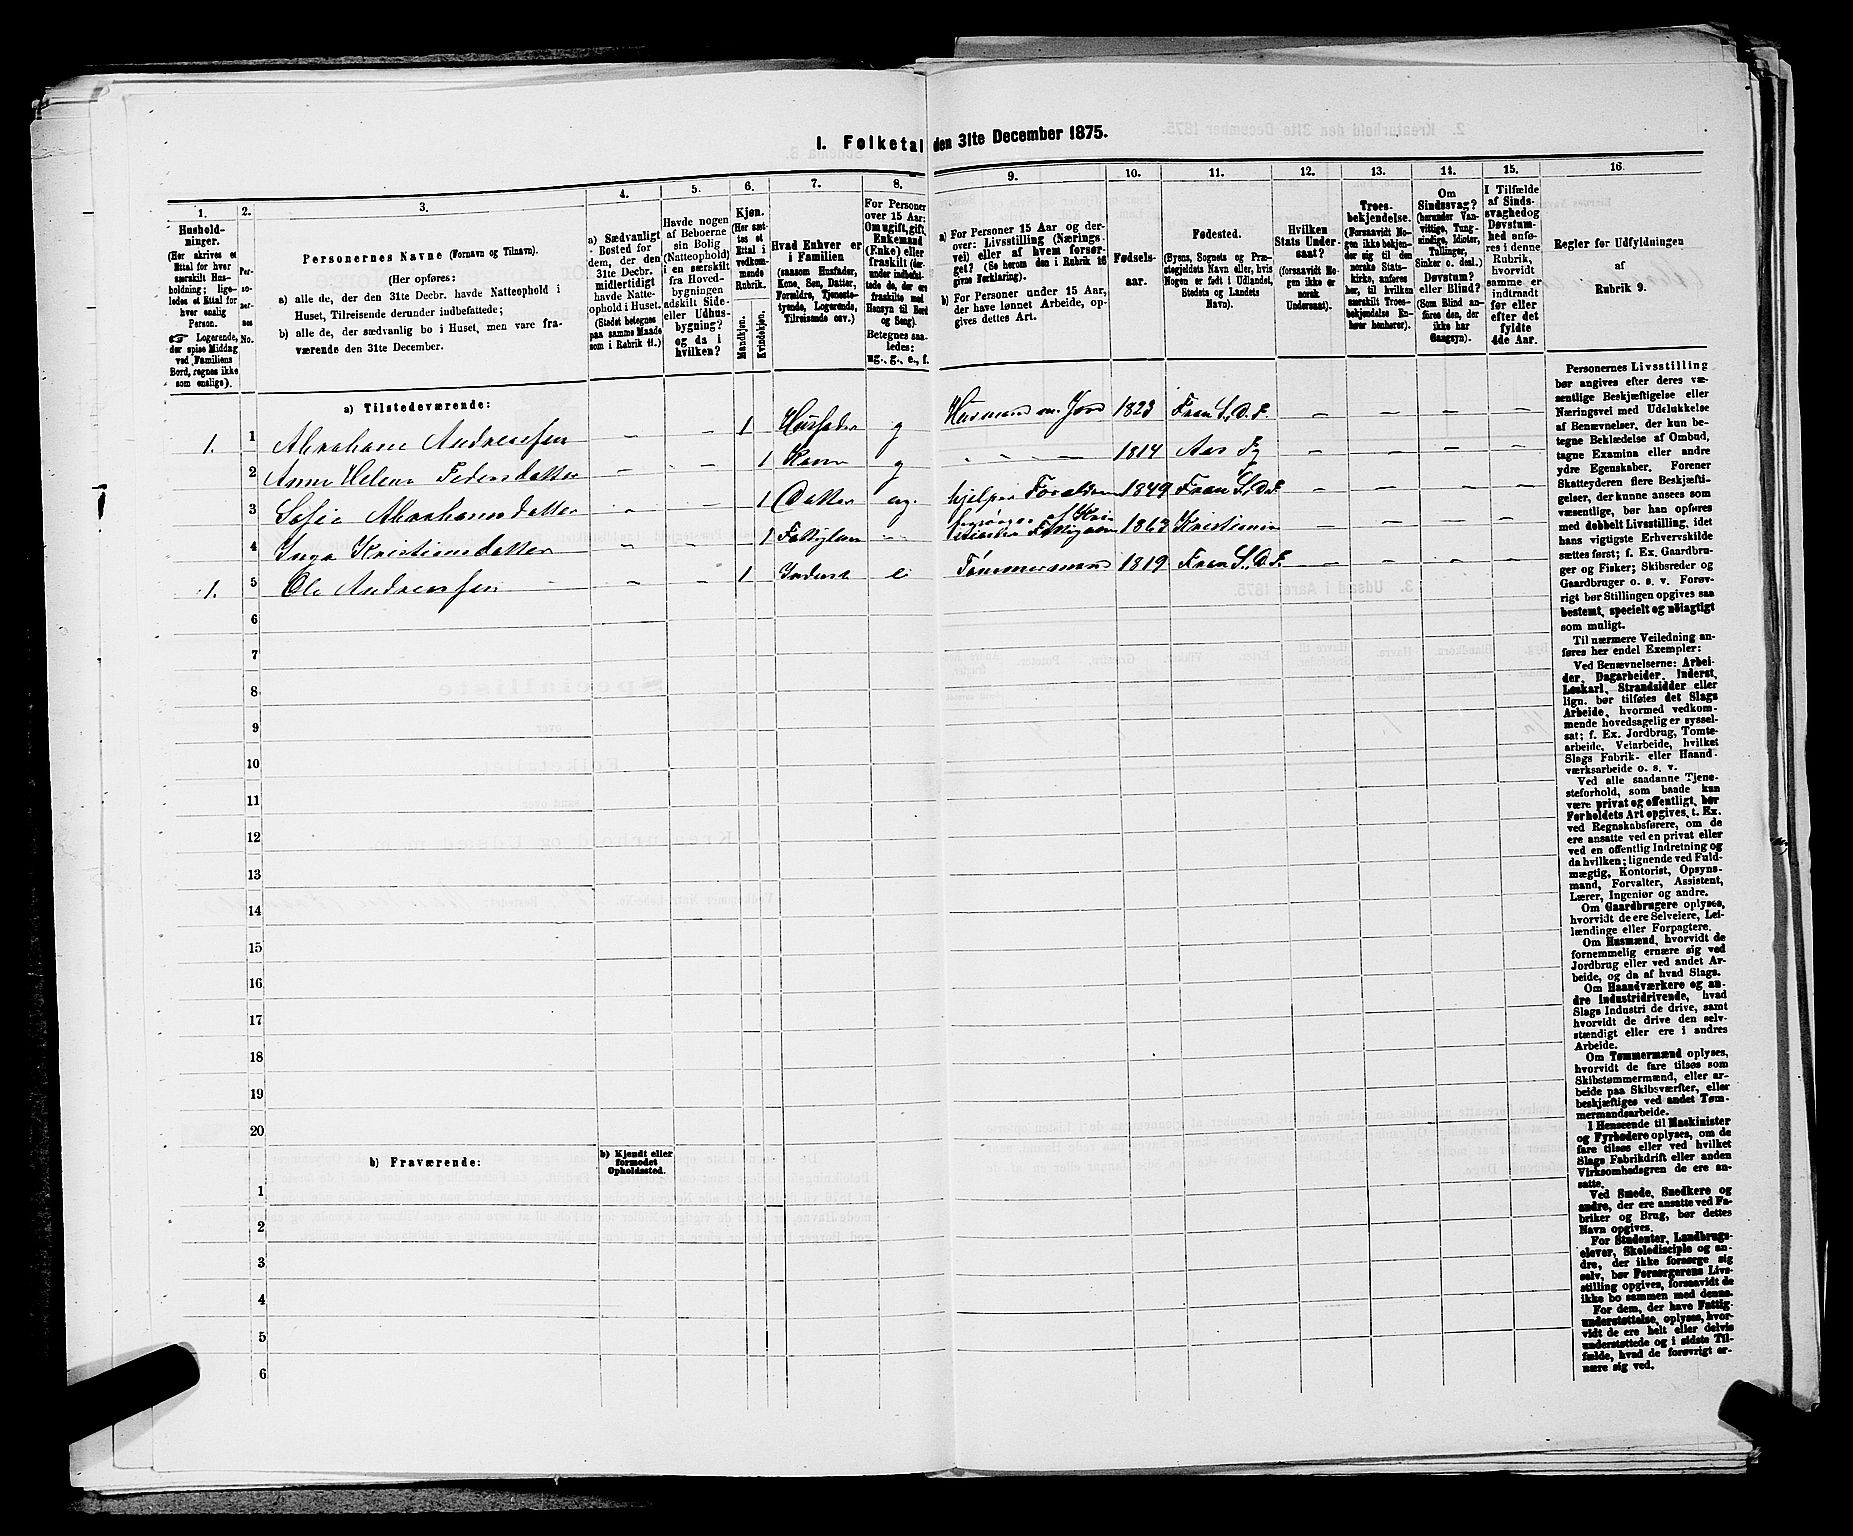 I. Folketal den 31te December 1875.
1. 2. 3. 4. 5. 6. 7. 8. 9. 10. 11. 12. 13. 14. 15. 16.
Husholdninger.
(Her skrives et Ettal for hver særskilt Husholdning; ligeledes et Ettal for hver enslig Person.
☞ Logerende, der spise Middag ved Familiens Bord, regnes ikke som enslige).
Personernes No.
Personernes Navne (Fornavn og Tilnavn).
(Her opføres:
a) alle de, der den 31te Decbr. havde Natteophold i Huset, Tilreisende derunder indbefattede;
b) alle de, der sædvanlig bo i Huset, men vare fraværende den 31te December.
a) Sædvanligt Bosted for dem, der den 31te Decbr. midlertidigt havde Natteophold i Huset.
(Stedet betegnes paa samme Maade som i Rubrik 11.)
Havde nogen af Beboerne sin Bolig (Natteophold) i en særskilt fra Hovedbygningen adskilt Side- eller Udhusbygning? og da i hvilken?
Kjøn.
(Her sættes et Ettal i vedkommende Rubrik.
Mandkjøn. Kvindekjøn.
Hvad Enhver er i Familien
(saasom Husfader, Kone, Søn, Datter, Forældre, Tjenestetyende, Logerende, Tilreisende osv.)
For Personer over 15 Aar: Om ugift, gift, Enkemand (Enke) eller fraskilt (derunder indbefattede de, der ere fraskilte med Hensyn til Bord og Seng).
Betegnes saaledes: ug., g., e., f.
a) For Personer 15 Aar og derover: Livsstilling (Næringsvei) eller af hvem forsørget? (Se herom den i Rubrik 16 givne Forklaring).
b) For Personer under 15 Aar, der have lønnet Arbeide, opgives dettes Art.
Fødselsaar.
Fødested.
(Byens, Sognets og Præstegjeldets Navn eller, hvis Nogen er født i Udlandet, Stedets og Landets Navn).
Hvilken Stats Undersaat?
(forsaavidt Nogen ikke er norsk Undersaat).
Troesbekjendelse.
(Forsaavidt Nogen ikke bekjender sig til den norske Statskirke, anføres her, til hvilken særskilt Troesbekjendelse Enhver henhører).
Om Sindssvag? (herunder Vanvittige, Tungsindige, Idioter, Tullinger, Sinker o. desl.)
Døvstum? eller Blind?
(Som Blind anføres den, der ikke har Gangsyn).
I Tilfælde af Sindssvaghed og Døvstumhed anføres i denne Rubrik, hvorvidt samme er indtraadt før eller efter det fyldte 4de Aar.
Regler for Udfyldningen af Rubrik 9.
a) Tilstedeværende:
1. 1 Abraham Andreassen – – 1 Husfader g Husmand m. Jord 1823 Fron S. D. F. – – – –
2 Anne Helene Pedersdatter – – 1 Kone g " " " 1814 Aas – – – –
3 Sofie Abrahamsdatter – – 1 Datter ug. hjelper Forældrene 1849 Fron S. D. F. – – – –
4 Inga Kristiansdatter – – 1 – forsørges af Kristiania Fattigvæsen 1863 Kristiania – – – –
1. 5 Ole Andreassen – – 1 Inderst e Tømmermand 1819 Fron S. D. F. – – – –
6
7
8
9
10
11
12
13
14
15
16
17
18
19
20
b) Fraværende: b) Kjendt eller formodet Opholdssted.
1
2
3
4
5
6
Personernes Livsstilling
bør angives efter deres væ-
sentlige Beskjæftigelse eller
Næringsvei med Udelukkelse
af Benævnelser, der kun be-
tegne Beklædelse af Ombud,
tagne Examina eller andre
ydre Egenskaber. Forener
Skatteyderen flere Beskjæfti-
gelser, der kunne ansees som
væsentlige, bør han opføres
med dobbelt Livsstilling, idet
hans vigtigste Erhvervskilde
sættes først; f. Ex. Gaardbru-
ger og Fisker; Skibsreder og
Gaardbruger o. s. v. Forøv-
rigt bør Stillingen opgives saa
bestemt, specielt og nøiagtigt
som muligt.
Til nærmere Veiledning an-
føres her endel Exempler:
Ved Benævnelserne: Arbei-
der, Dagarbeider, Inderst,
Løskarl, Strandsidder eller
lign. bør tilføies det Slags
Arbeide, hvormed vedkom-
mende hovedsagelig er syssel-
sat; f. Ex. Jordbrug, Tomte-
arbeide, Veiarbeide, hvilket
Slags Fabrik- eller Haand-
værksarbeide o. s. v.
Ved alle saadanne Tjene-
steforhold, som baade kan
være privat og offentligt, bør
Forholdets Art opgives, t. Ex.
ved Regnskabsførere, om de
ere ansatte ved en privat eller
ved en offentlig Indretning og
da hvilken; lignende ved Fuld-
mægtig, Kontorist, Opsyns-
mand, Forvalter, Assistent,
Lærer, Ingeniør og andre.
Om Gaardbrugere oplyses,
hvorvidt de ere Selveiere, Lei-
lændinge eller Forpagtere.
Om Husmænd, hvorvidt de
fornemmelig ernære sig ved
Jordbrug eller ved andet Ar-
beide, og da af hvad Slags.
Om Haandværkere og an-
dre Industridrivende, hvad
Slags Industri de drive, samt
hvorvidt de drive den selv-
stændigt eller ere i andres
Arbeide.
Om Tømmermænd oplyses,
hvorvidt de fare tilsøs som
Skibstømmermænd, eller ar-
beide paa Skibsværfter, eller
beskjæftiges ved andet Tøm-
mermandsarbeide.
I Henseende til Maskinister
og Fyrbødere oplyses, om de
fare tilsøs eller ved hvilket
Slags Fabrikdrift eller anden
Virksomhedsgren de ere an-
satte.
Ved Smede, Snedkere og
andre, der ere ansatte ved Fa-
briker og Brug, bør dettes
Navn opgives.
For Studenter, Landbrugs-
elever, Skoledisciple og an-
dre, der ikke forsørge sig
selv, bør Forsørgerens Livs-
stilling opgives, forsaavidt de
ikke bo sammen med denne.
For dem, der have Fattig-
understøttelse, oplyses, hvor-
vidt de ere helt eller delvis
understøttede og i sidste Til-
fælde, hvad de forøvrigt er-
nære sig ved.